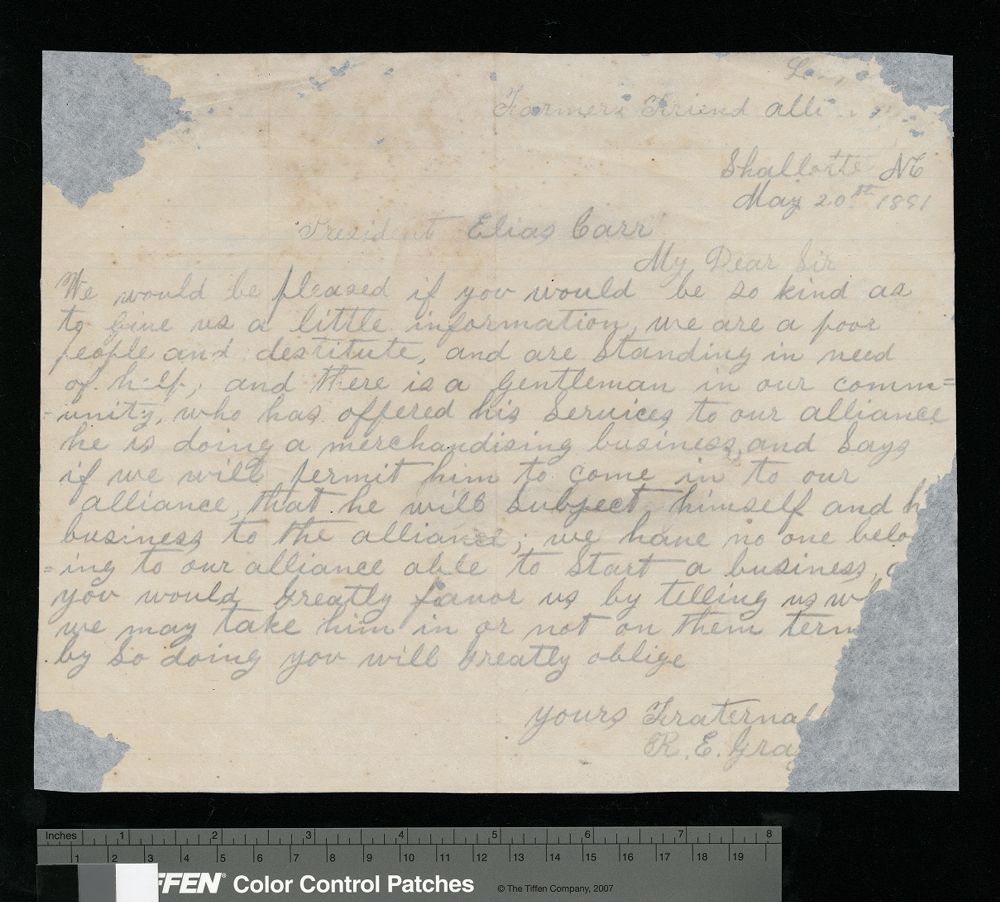 Farmers Friend alli
Shallotte NC
May 20th 1891
President Elias Carr
My Dear Sir
We would be pleased if you would be so kind as
to give us a little information, we are a poor
people and destitute, and are standing in need
of help, and there is a gentleman in our comm=
=unity, who has offered his services to our alliance
he is doing a merchandising business, and says
if we will permit him to come in to our
alliance, that he will subject himself and h
business to the alliance; we have no one belo
=ing to our alliance able to start a business,
you would greatly favor us by telling us wh
we may take him in or not on them term
by so doing you will greatly oblige
yours Fraternal
R. E. Gra
Inches 1 2 3 4 5 6 7 8
1 2 3 4 5 6 7 8 9 10 11 12 13 14 15 16 17 18 19
FFEN® Color Control Patches © The Tiffen Company, 2007